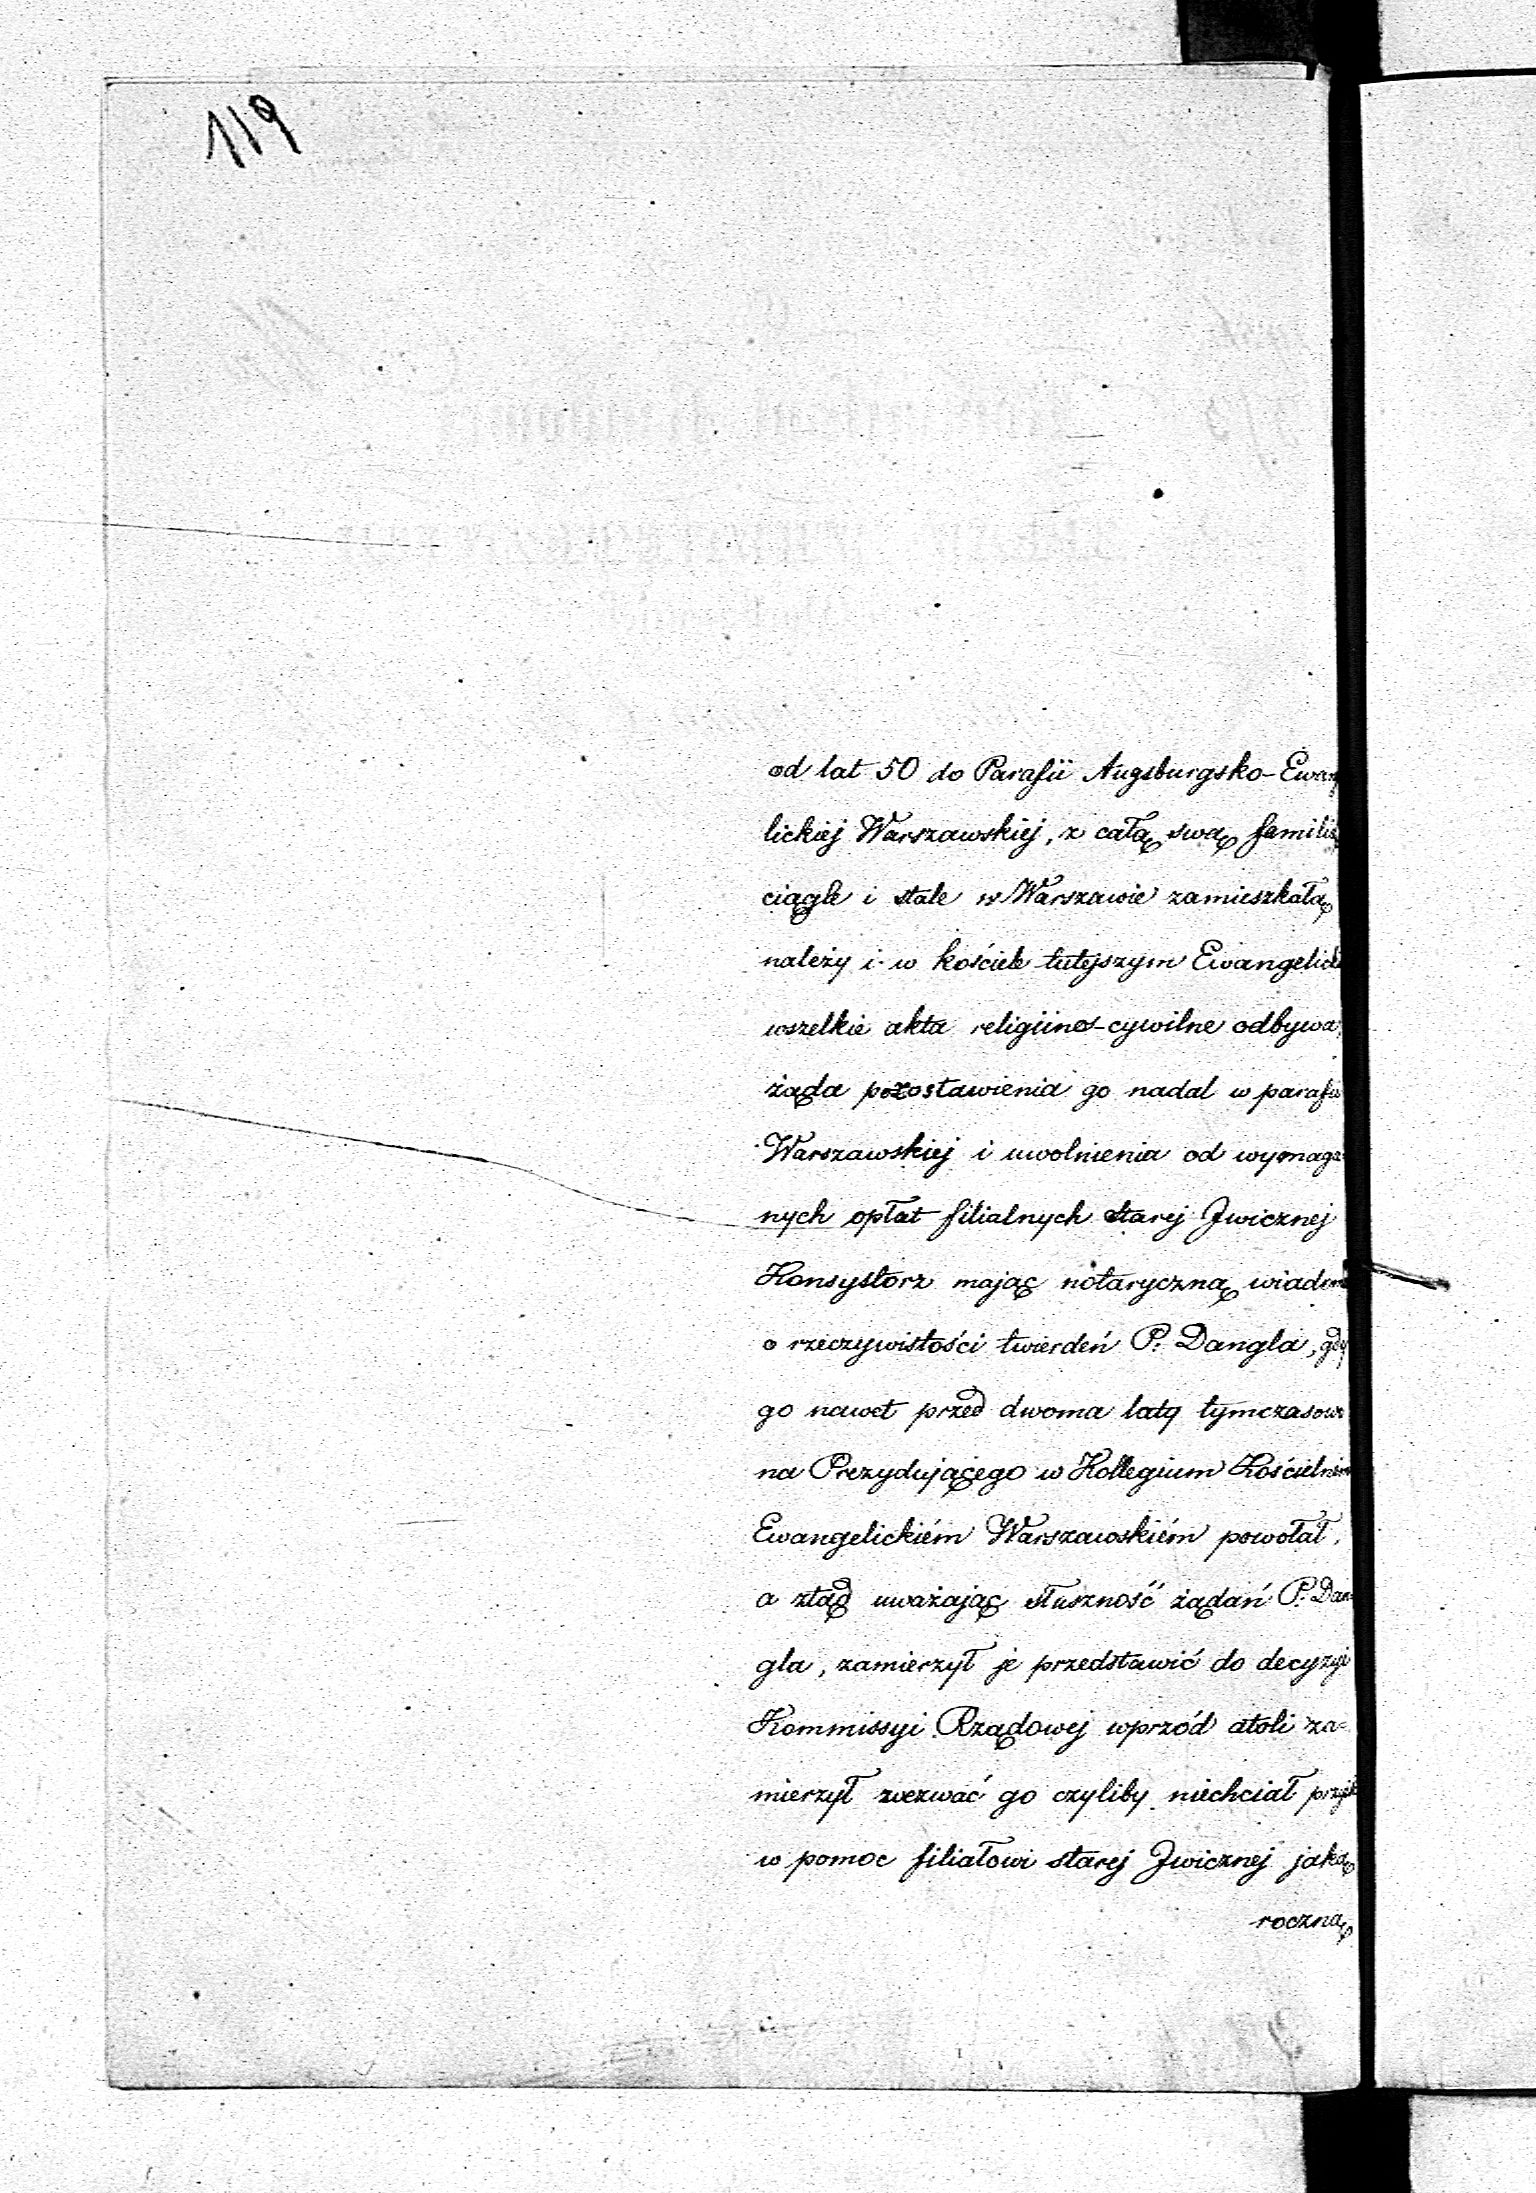 119
od lat 50 do Parafii Augsburgsko-Ewan
lickiej Warszawskiej, z całą swą familią
ciągle i stale w Warszawie zamieszkałą
należy i w kościele tutejszym Ewangelick
wszelkie akta religiino-cywilne odbywa,
żąda pozostawienia go nadal w parafii
Warszawskiej i uwolnienia od wymaga
nych opłat filialnych starej Jwicznej
Konsystorz mając notaryczną wiadom
o rzeczywistości twierdeń P. Dangla, gdy
go nawet przed dwoma laty tymczasow
na Prezydującego w Kollegium Kościelném
Ewangelickiém Warszawskiém powołał,
a ztąd uważając słuszność żądań P. Dan-
gla, zamierzył je przedstawić do decyzyi
Kommissyi Rządowej wprzód atoli za-
mierzył wezwać go czyliby niechciał
w pomoc filiałowi starej Jwicznej jaką
roczną